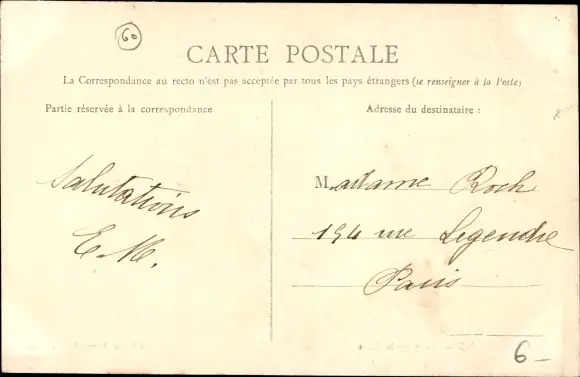 60
CARTE POSTALE
La Correspondance au recto n'est pas acceptée par tous les pays étrangers (se renseigner à la Poste)
Partie réservée à la correspondance
Adresse du destinataire :
Salutations
E. M.
Madame Roch
194 rue Legendre
Paris
6 –